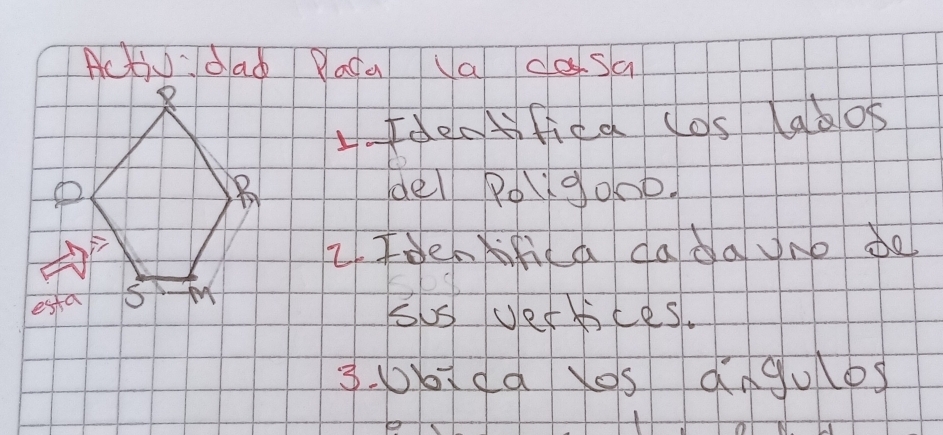 Actividad Para la casa
P
1. Identifica los lados
D
R
del Poligono.
2. Identifica cada uno de
esta
S
M
sus vertices.
3. Ubica los ángulos